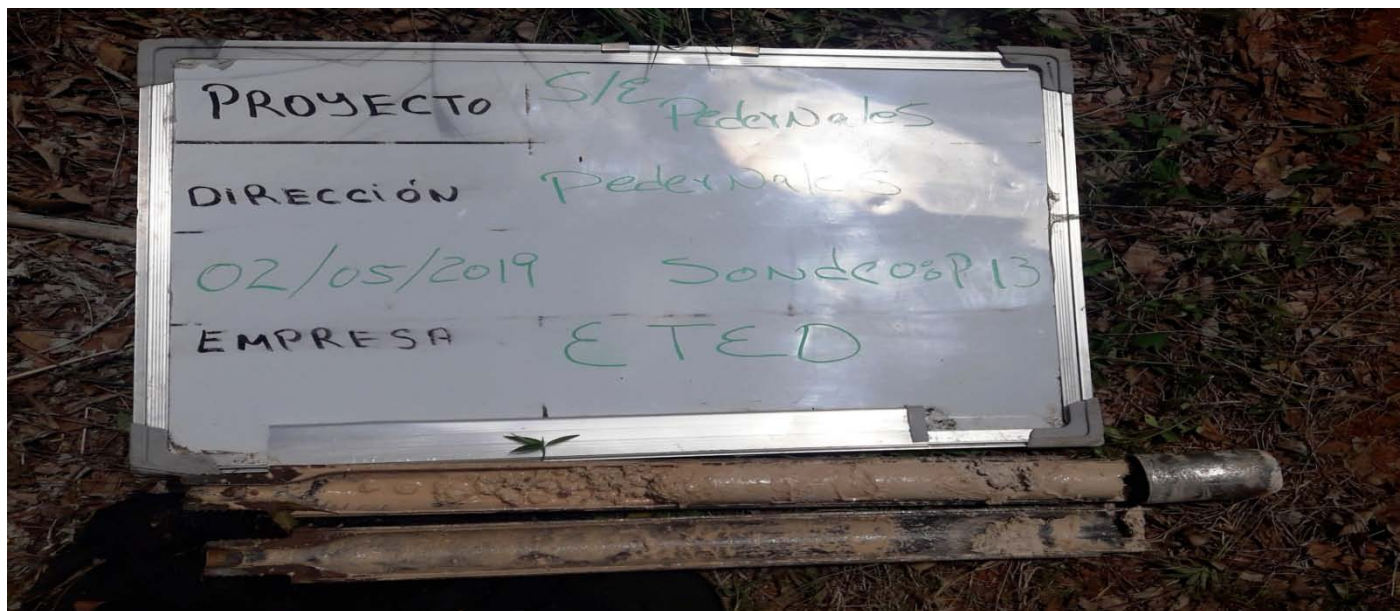 PROYECTO S/E Pedernales
DIRECCIÓN Pedernales
02/05/2019 Sondeo: P 13
EMPRESA ETED